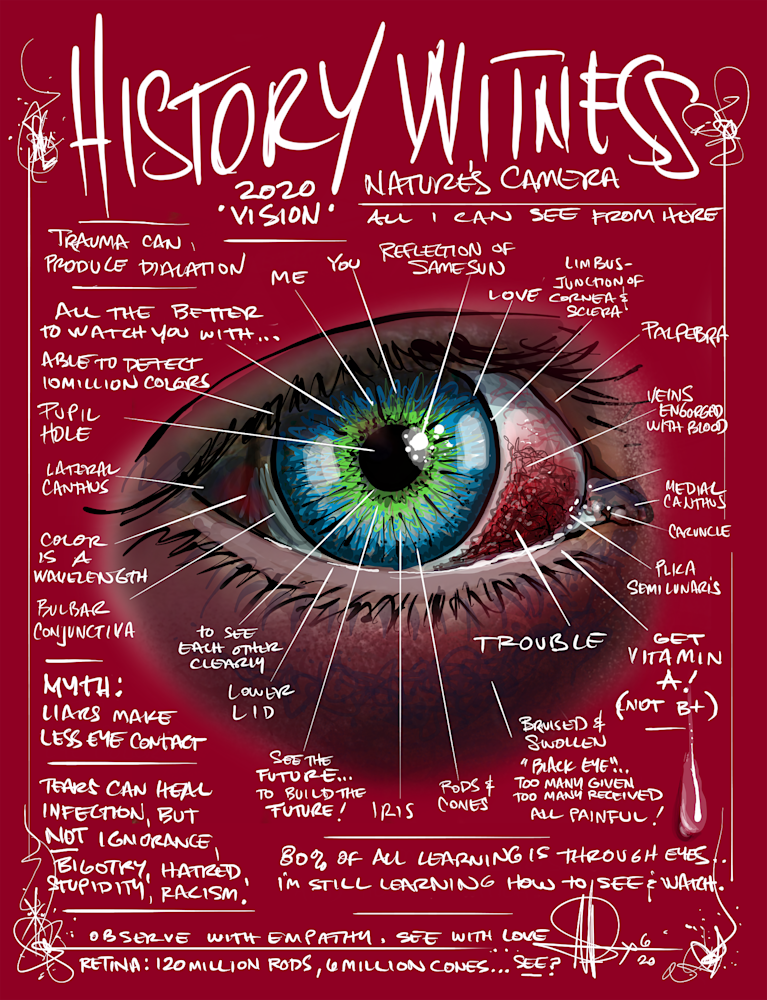 HISTORY WITNESS
2020
"VISION"
NATURE'S CAMERA
ALL I CAN SEE FROM HERE
TRAUMA CAN
PRODUCE DIALATION
ME
YOU
REFLECTION OF
SAME SUN
LOVE
LIMBUS-
JUNCTION OF
CORNEA &
SCLERA
ALL THE BETTER
TO WATCH YOU WITH...
PALPEBRA
ABLE TO DETECT
10 MILLION COLORS
PUPIL
HOLE
VEINS
ENGORGED
WITH BLOOD
LATERAL
CANTHUS
MEDIAL
CANTHUS
CARUNCLE
COLOR
IS A
WAVELENGTH
PLICA
SEMILUNARIS
BULBAR
CONJUNCTIVA
TO SEE
EACH OTHER
CLEARLY
TROUBLE
GET
VITAMIN
A!
(NOT B+)
LOWER
LID
MYTH:
LIARS MAKE
LESS EYE CONTACT
SEE THE
FUTURE...
TO BUILD THE
FUTURE!
IRIS
RODS &
CONES
BRUISED &
SWOLLEN
"BLACK EYE"...
TOO MANY GIVEN
TOO MANY RECEIVED
ALL PAINFUL!
TEARS CAN HEAL
INFECTION, BUT
NOT IGNORANCE,
BIGOTRY, HATRED,
STUPIDITY, RACISM!
80% OF ALL LEARNING IS THROUGH EYES..
I'M STILL LEARNING HOW TO SEE & WATCH.
OBSERVE WITH EMPATHY. SEE WITH LOVE
6
20
RETINA: 120 MILLION RODS, 6 MILLION CONES... SEE?